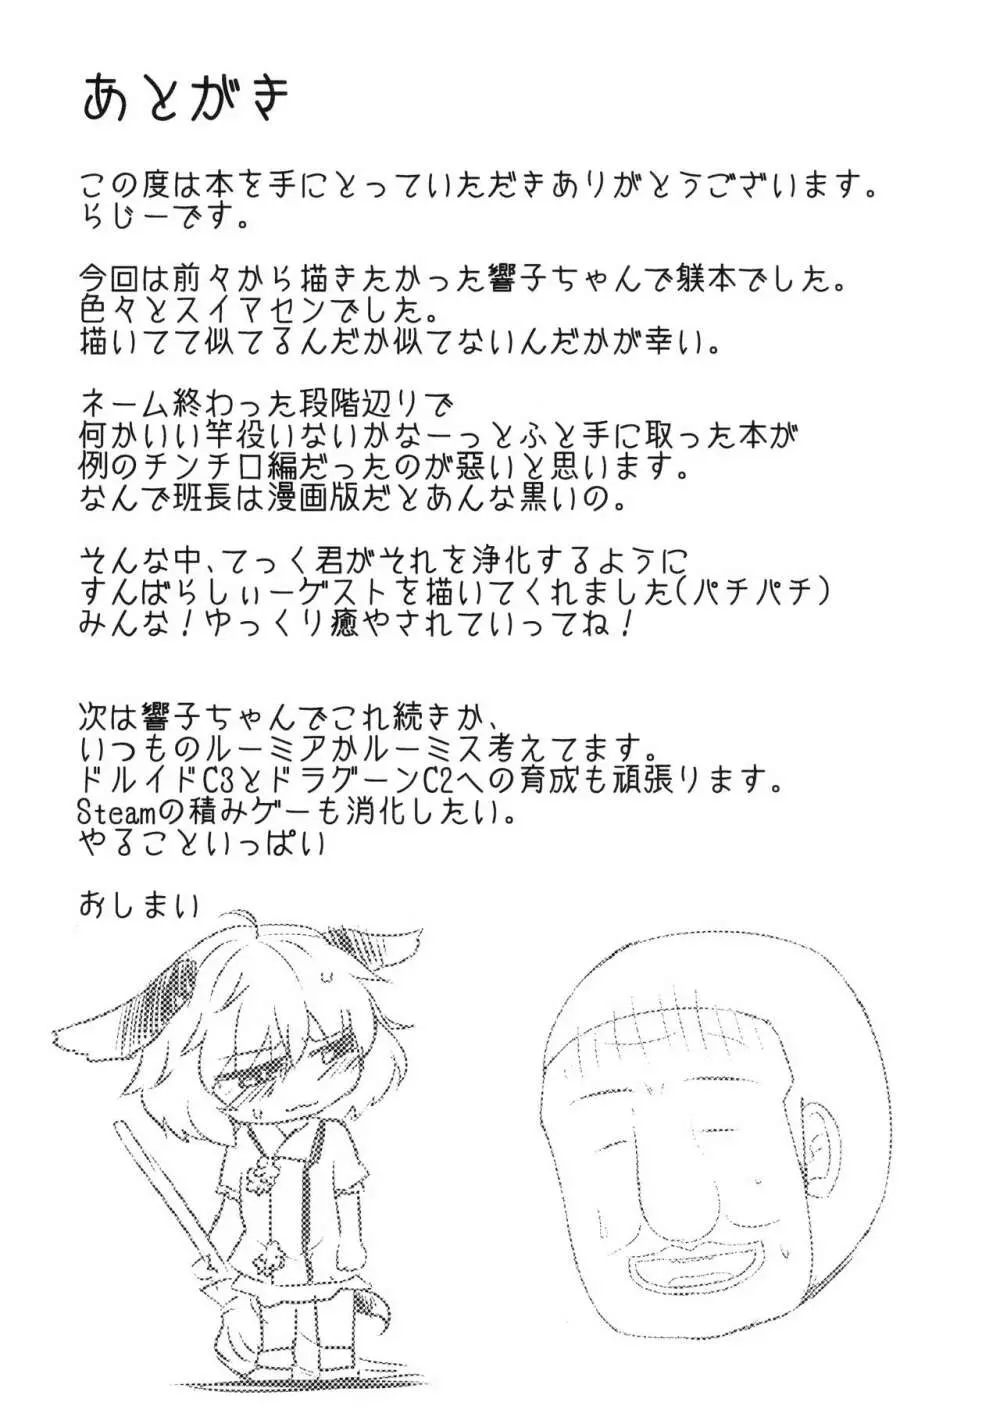 あとがき
この度は本を手にとっていただきありがとうございます。
らじーです。
今回は前々から描きたかった響子ちゃんで躾本でした。
色々とスイマセンでした。
描いてて似てるんだか似てないんだかが幸い。
ネーム終わった段階辺りで
何かいい竿役いないかなーっとふと手に取った本が
例のチンチロ編だったのが悪いと思います。
なんで班長は漫画版だとあんな黒いの。
そんな中、てっく君がそれを浄化するように
すんばらしぃーゲストを描いてくれました(パチパチ)
みんな!ゆっくり癒やされていってね!
次は響子ちゃんでこれ続きか、
いつものルーミアかルーミス考えてます。
ドルイドC3とドラグーンC2への育成も頑張ります。
Steamの積みゲーも消化したい。
やることいっぱい
おしまい